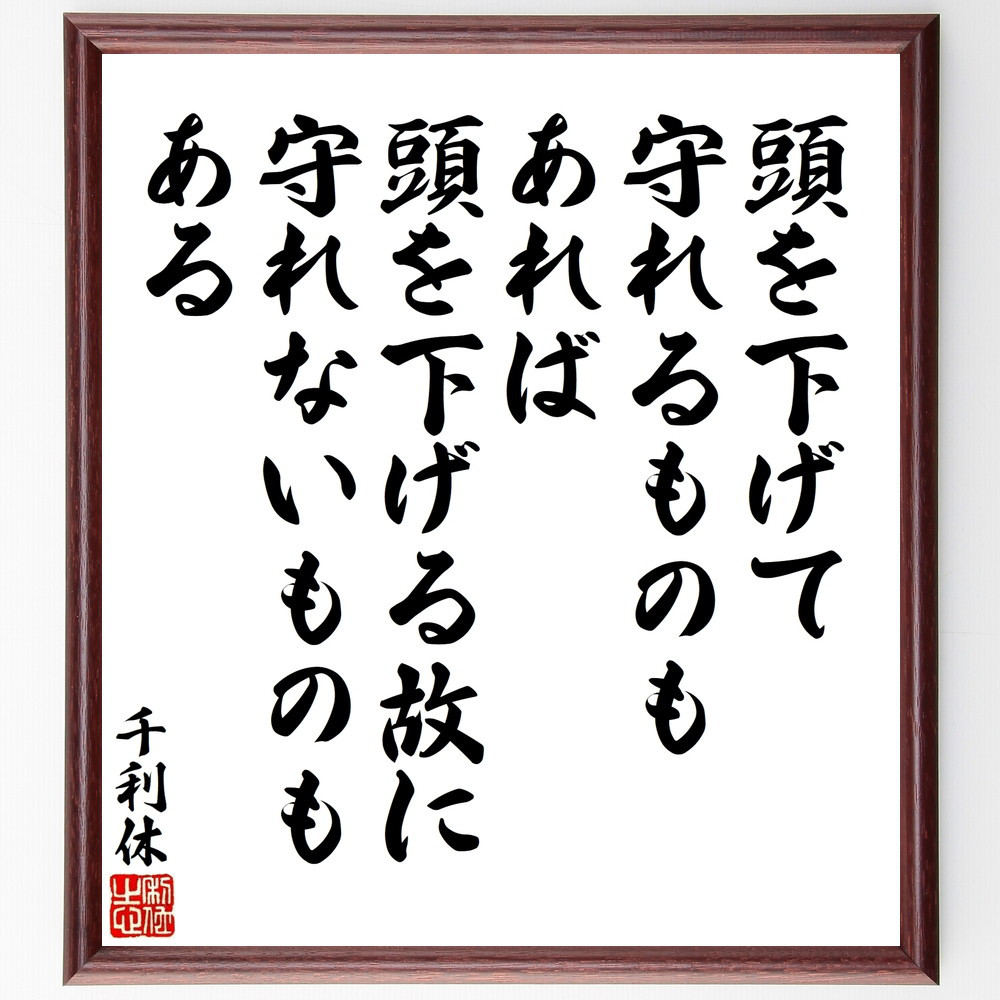 頭を下げて
守れるものも
あれば
頭を下げる故に
守れないものも
ある
千利休